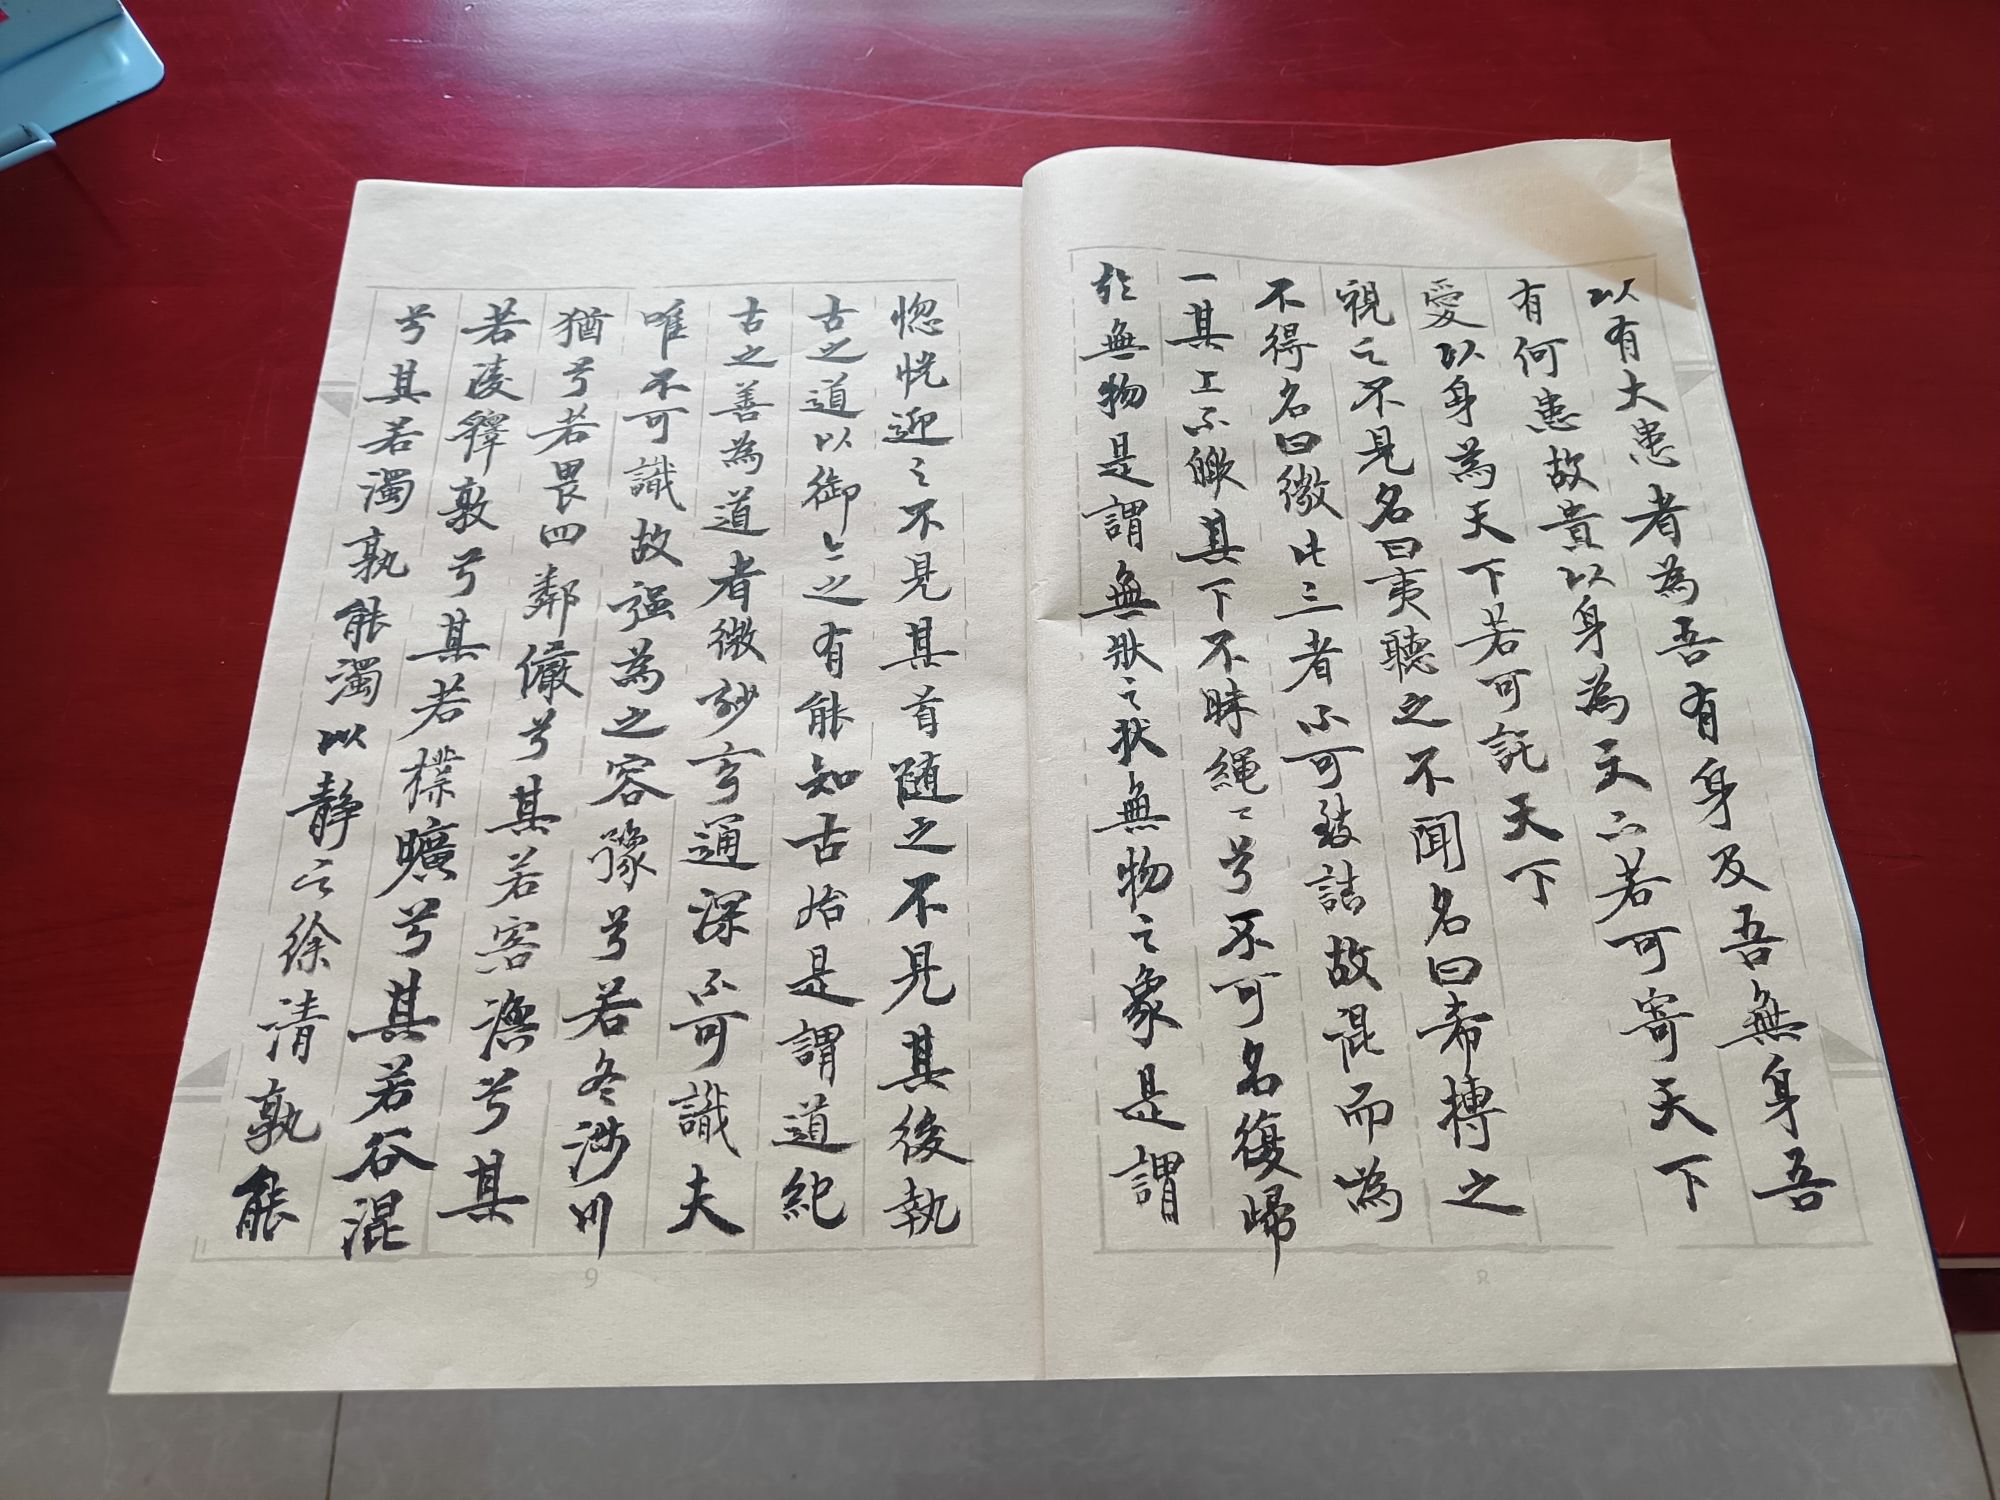 以有大患者為吾有身及吾無身吾
有何患故貴以身為天下若可寄天下
愛以身為天下若可託天下
視之不見名曰夷聽之不聞名曰希搏之
不得名曰微此三者不可致詰故混而為
一其上不皦其下不昧繩〻兮不可名復歸
於無物是謂無狀之狀無物之象是謂
惚恍迎之不見其首随之不見其後執
古之道以御今之有能知古始是謂道紀
古之善為道者微妙玄通深不可識夫
唯不可識故强為之容豫兮若冬涉川
猶兮若畏四鄰儼兮其若客渙兮其
若凌釋敦兮其若樸曠兮其若谷混
兮其若濁孰能濁以靜之徐清孰能
9
8